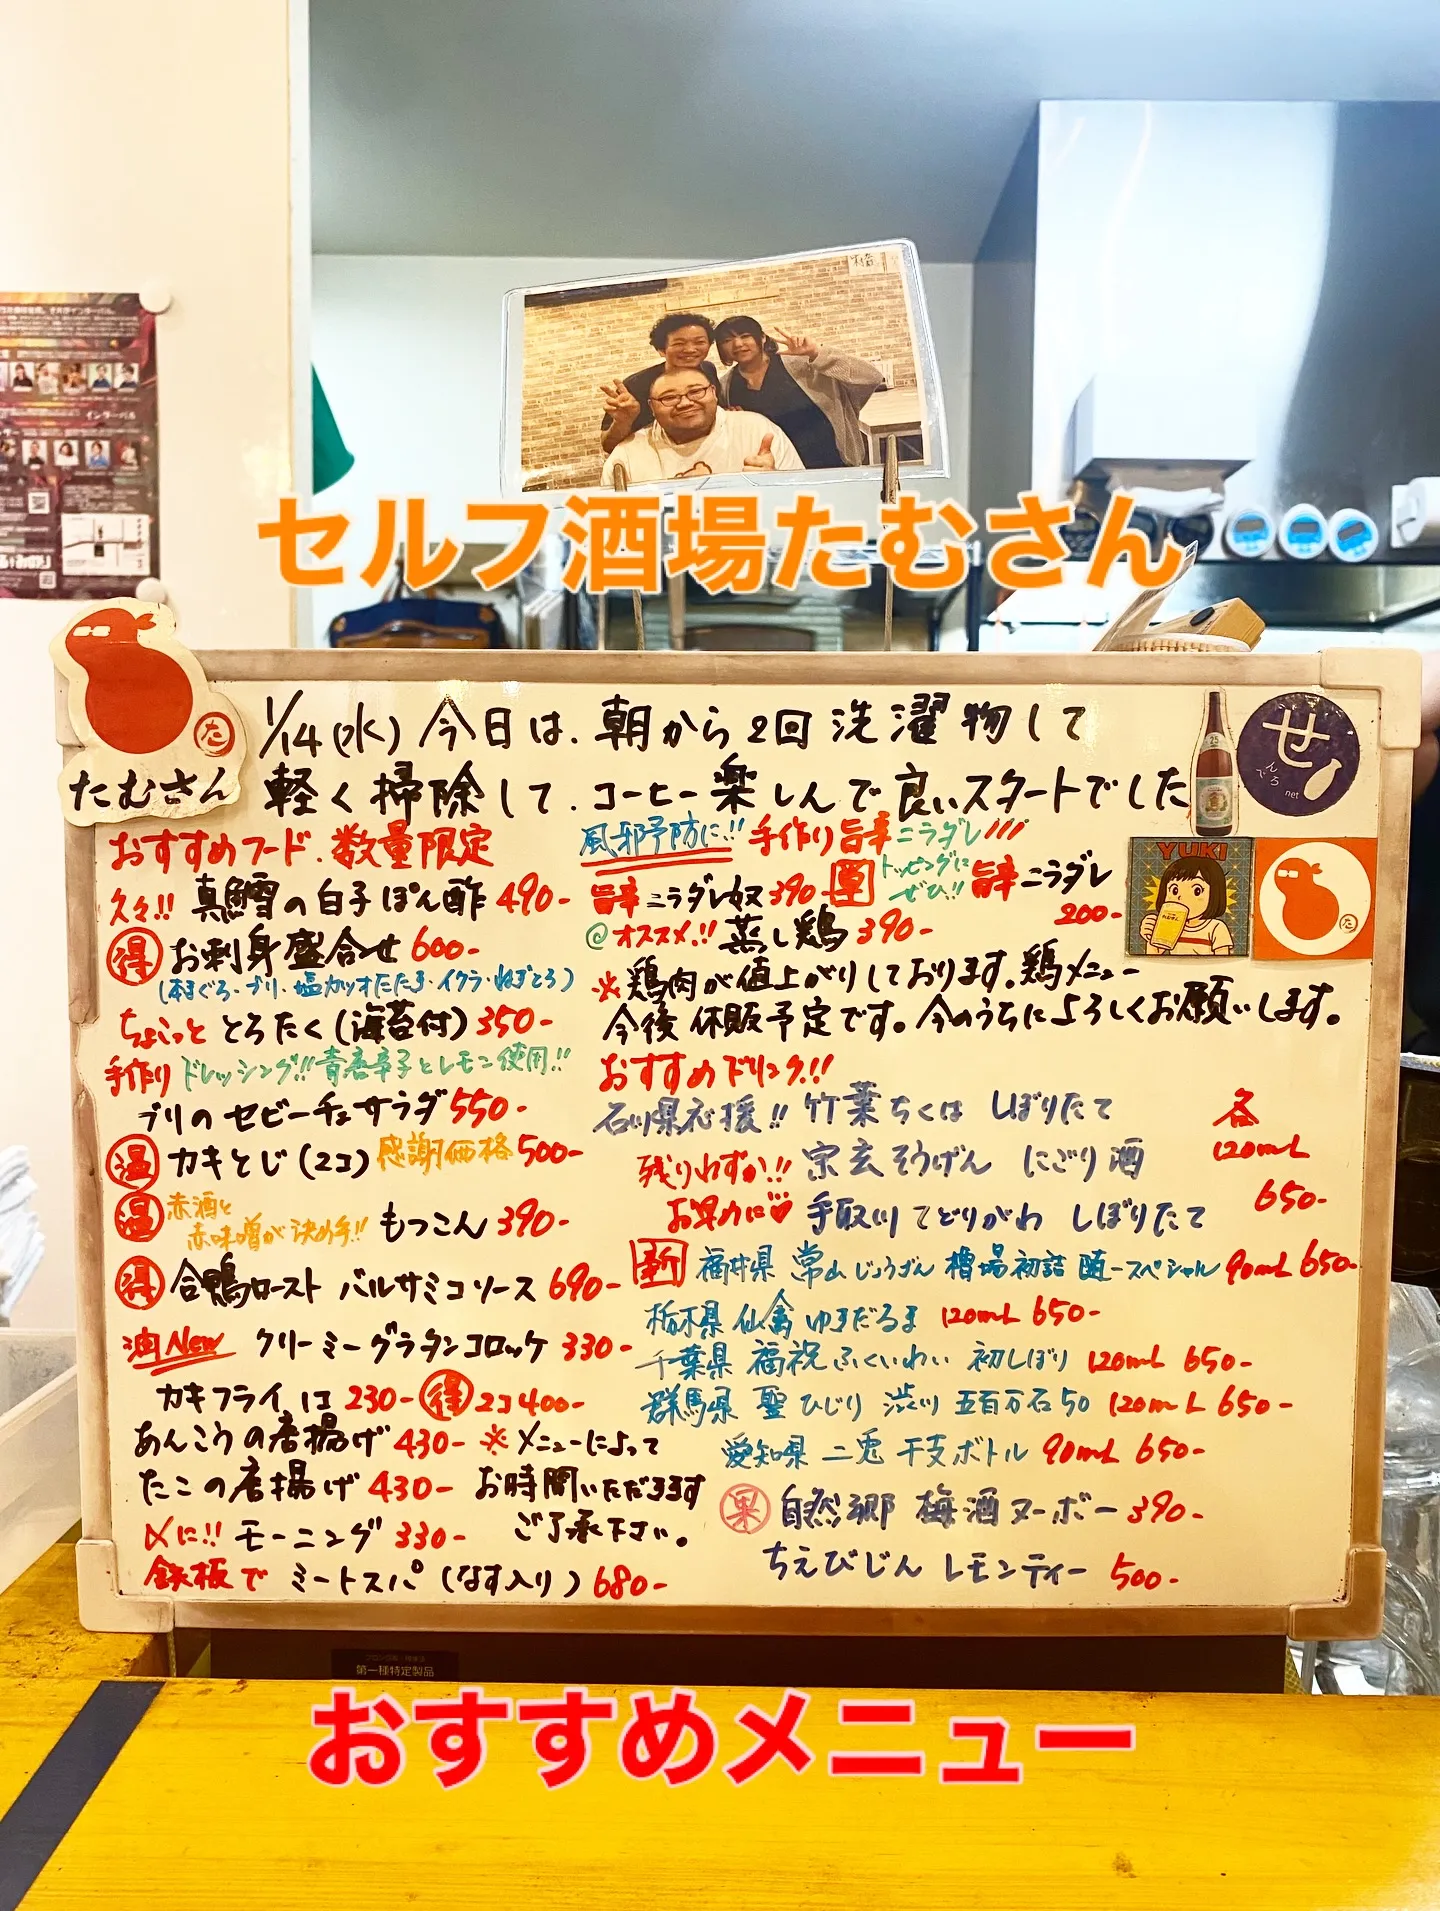 セルフ酒場たむさん
たむさん
た
1/14(水) 今日は、朝から2回洗濯物して
軽く掃除して、コーヒー楽しんで良いスタートでした
せ
んべろ
net
YUKI
おすすめフード、数量限定
久々!! 真鱈の白子ぽん酢 490-
得 お刺身盛合せ 600-
(本まぐろ・ブリ・塩カツオたたき・イクラ・ねぎとろ)
ちょこっと とろたく(海苔付) 350-
手作り ドレッシング!! 青唐辛子とレモン使用!!
ブリのセビーチェサラダ 550-
温 カキとじ(2コ) 感謝価格 500-
温 赤酒と
赤味噌が決め手!! もつこん 390-
得 合鴨ロースト バルサミコソース 690-
油 New クリーミーグラタンコロッケ 330-
カキフライ 1コ 230- 得 2コ 400-
あんこうの唐揚げ 430- ※メニューによって
たこの唐揚げ 430- お時間いただきます
〆に!! モーニング 330- ご了承下さい。
鉄板で ミートスパ(なす入り) 680-
風邪予防に!! 手作り旨辛ニラダレ!!!
旨辛ニラダレ奴 390- 単 トッピングに
ぜひ!! 旨辛ニラダレ
200-
@オススメ!! 蒸し鶏 390-
※鶏肉が値上がりしております。鶏メニュー
今後休販予定です。今のうちによろしくお願いします。
おすすめドリンク!!
石川県応援!! 竹葉 ちくは しぼりたて 各
残りわずか!! 宗玄 そうげん にごり酒 120mL
お早めに♡ 手取川 てどりがわ しぼりたて 650-
新 福井県 常山 じょうざん 槽場初詰 直一スペシャル 90mL 650-
栃木県 仙禽 ゆきだるま 120mL 650-
千葉県 福祝 ふくいわい 初しぼり 120mL 650-
群馬県 聖 ひじり 渋川 五百万石50 120mL 650-
愛知県 二兎 干支ボトル 90mL 650-
果 自然郷 梅酒ヌーボー 390-
ちえびじん レモンティー 500-
第一種特定製品
おすすめメニュー